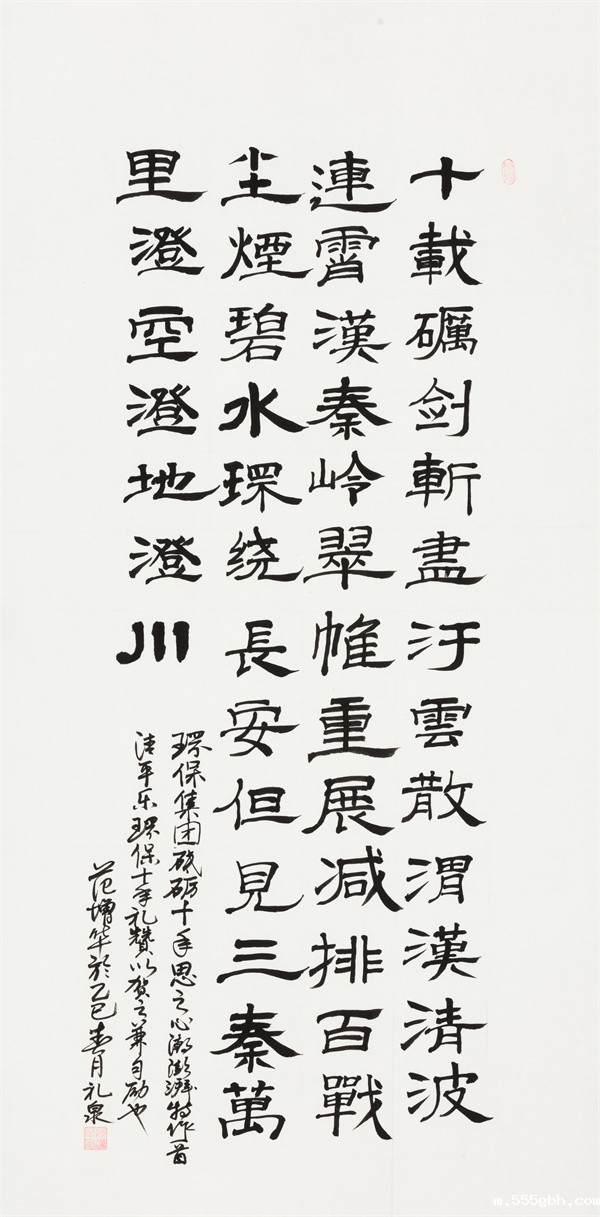 十載礪剑斬盡汙雲散渭漢清波
連霄漢秦岭翠帷重展减排百戰
尘煙碧水環绕長安但見三秦萬
里澄空澄地澄川
环保集团砥砺十年思之心潮澎湃特作首
清平乐环保十年礼赞以贺之兼自励也
范增华於乙巳春月礼泉
m.555gbh.com